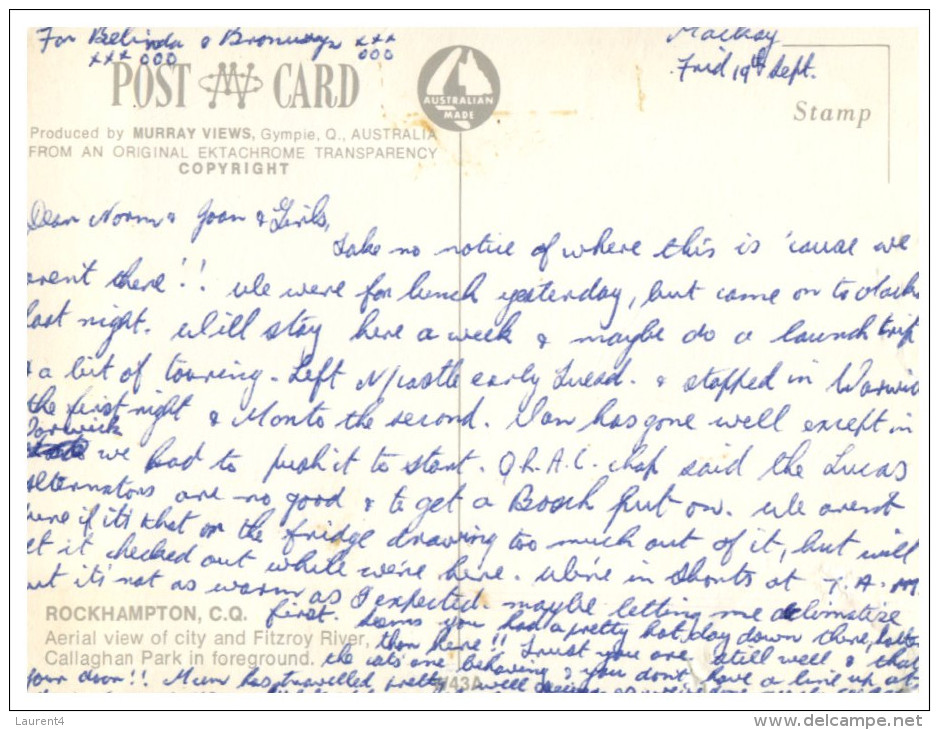 For Belinda & Bronwyn xxx
xxx 000 000
Mackay
Frid 19th Sept.
POST CARD
AUSTRALIAN
MADE
Stamp
Produced by MURRAY VIEWS, Gympie, Q., AUSTRALIA
FROM AN ORIGINAL EKTACHROME TRANSPARENCY
COPYRIGHT
Dear Norm & Joan & Girls,
Take no notice of where this is 'cause we
arent there!! We were for lunch yesterday, but came on to
last night. Will stay here a week & maybe do a launch trip
& a bit of touring. Left N/castle early Wed. & stopped in Warwic
the first night & Monto the second. Van has gone well except in
Warwick
we had to push it to start. chap said the Lucas
alternators are no good & to get a Bosch put on. We arent
if it's that or the fridge drawing too much out of it, but will
it checked out while we're here. We're in shorts at 7. A.M.
but it's not as warm as I expected maybe letting me
ROCKHAMPTON, C.Q.
first. Seems you had a pretty hot day down there,
Aerial view of city and Fitzroy River,
than here!! Trust you are still well & that
Callaghan Park in foreground.
the cats are behaving & you dont have a line up at
your door!! Mum has travelled pretty well
W43A
Laurent4
www.delcampe.net